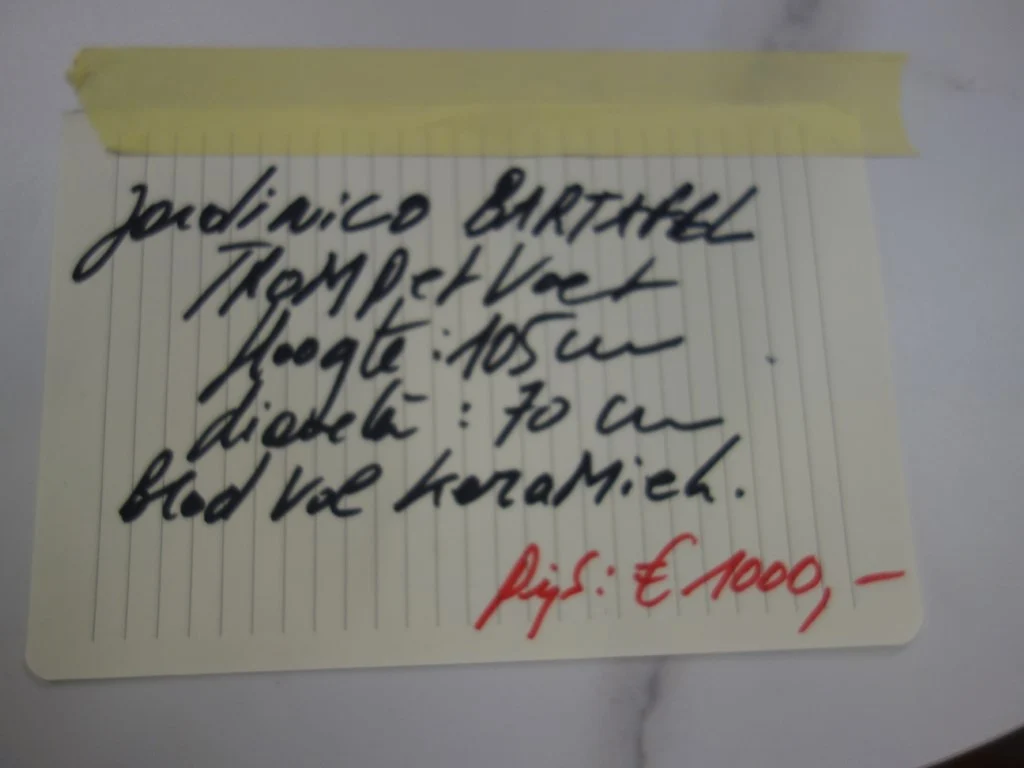 Jordinico BARTAFEL
TROMPET Voet
Hoogte : 105 cm
diameter : 70 cm
Blad Vol keraMiek.
Prijs : € 1000,-